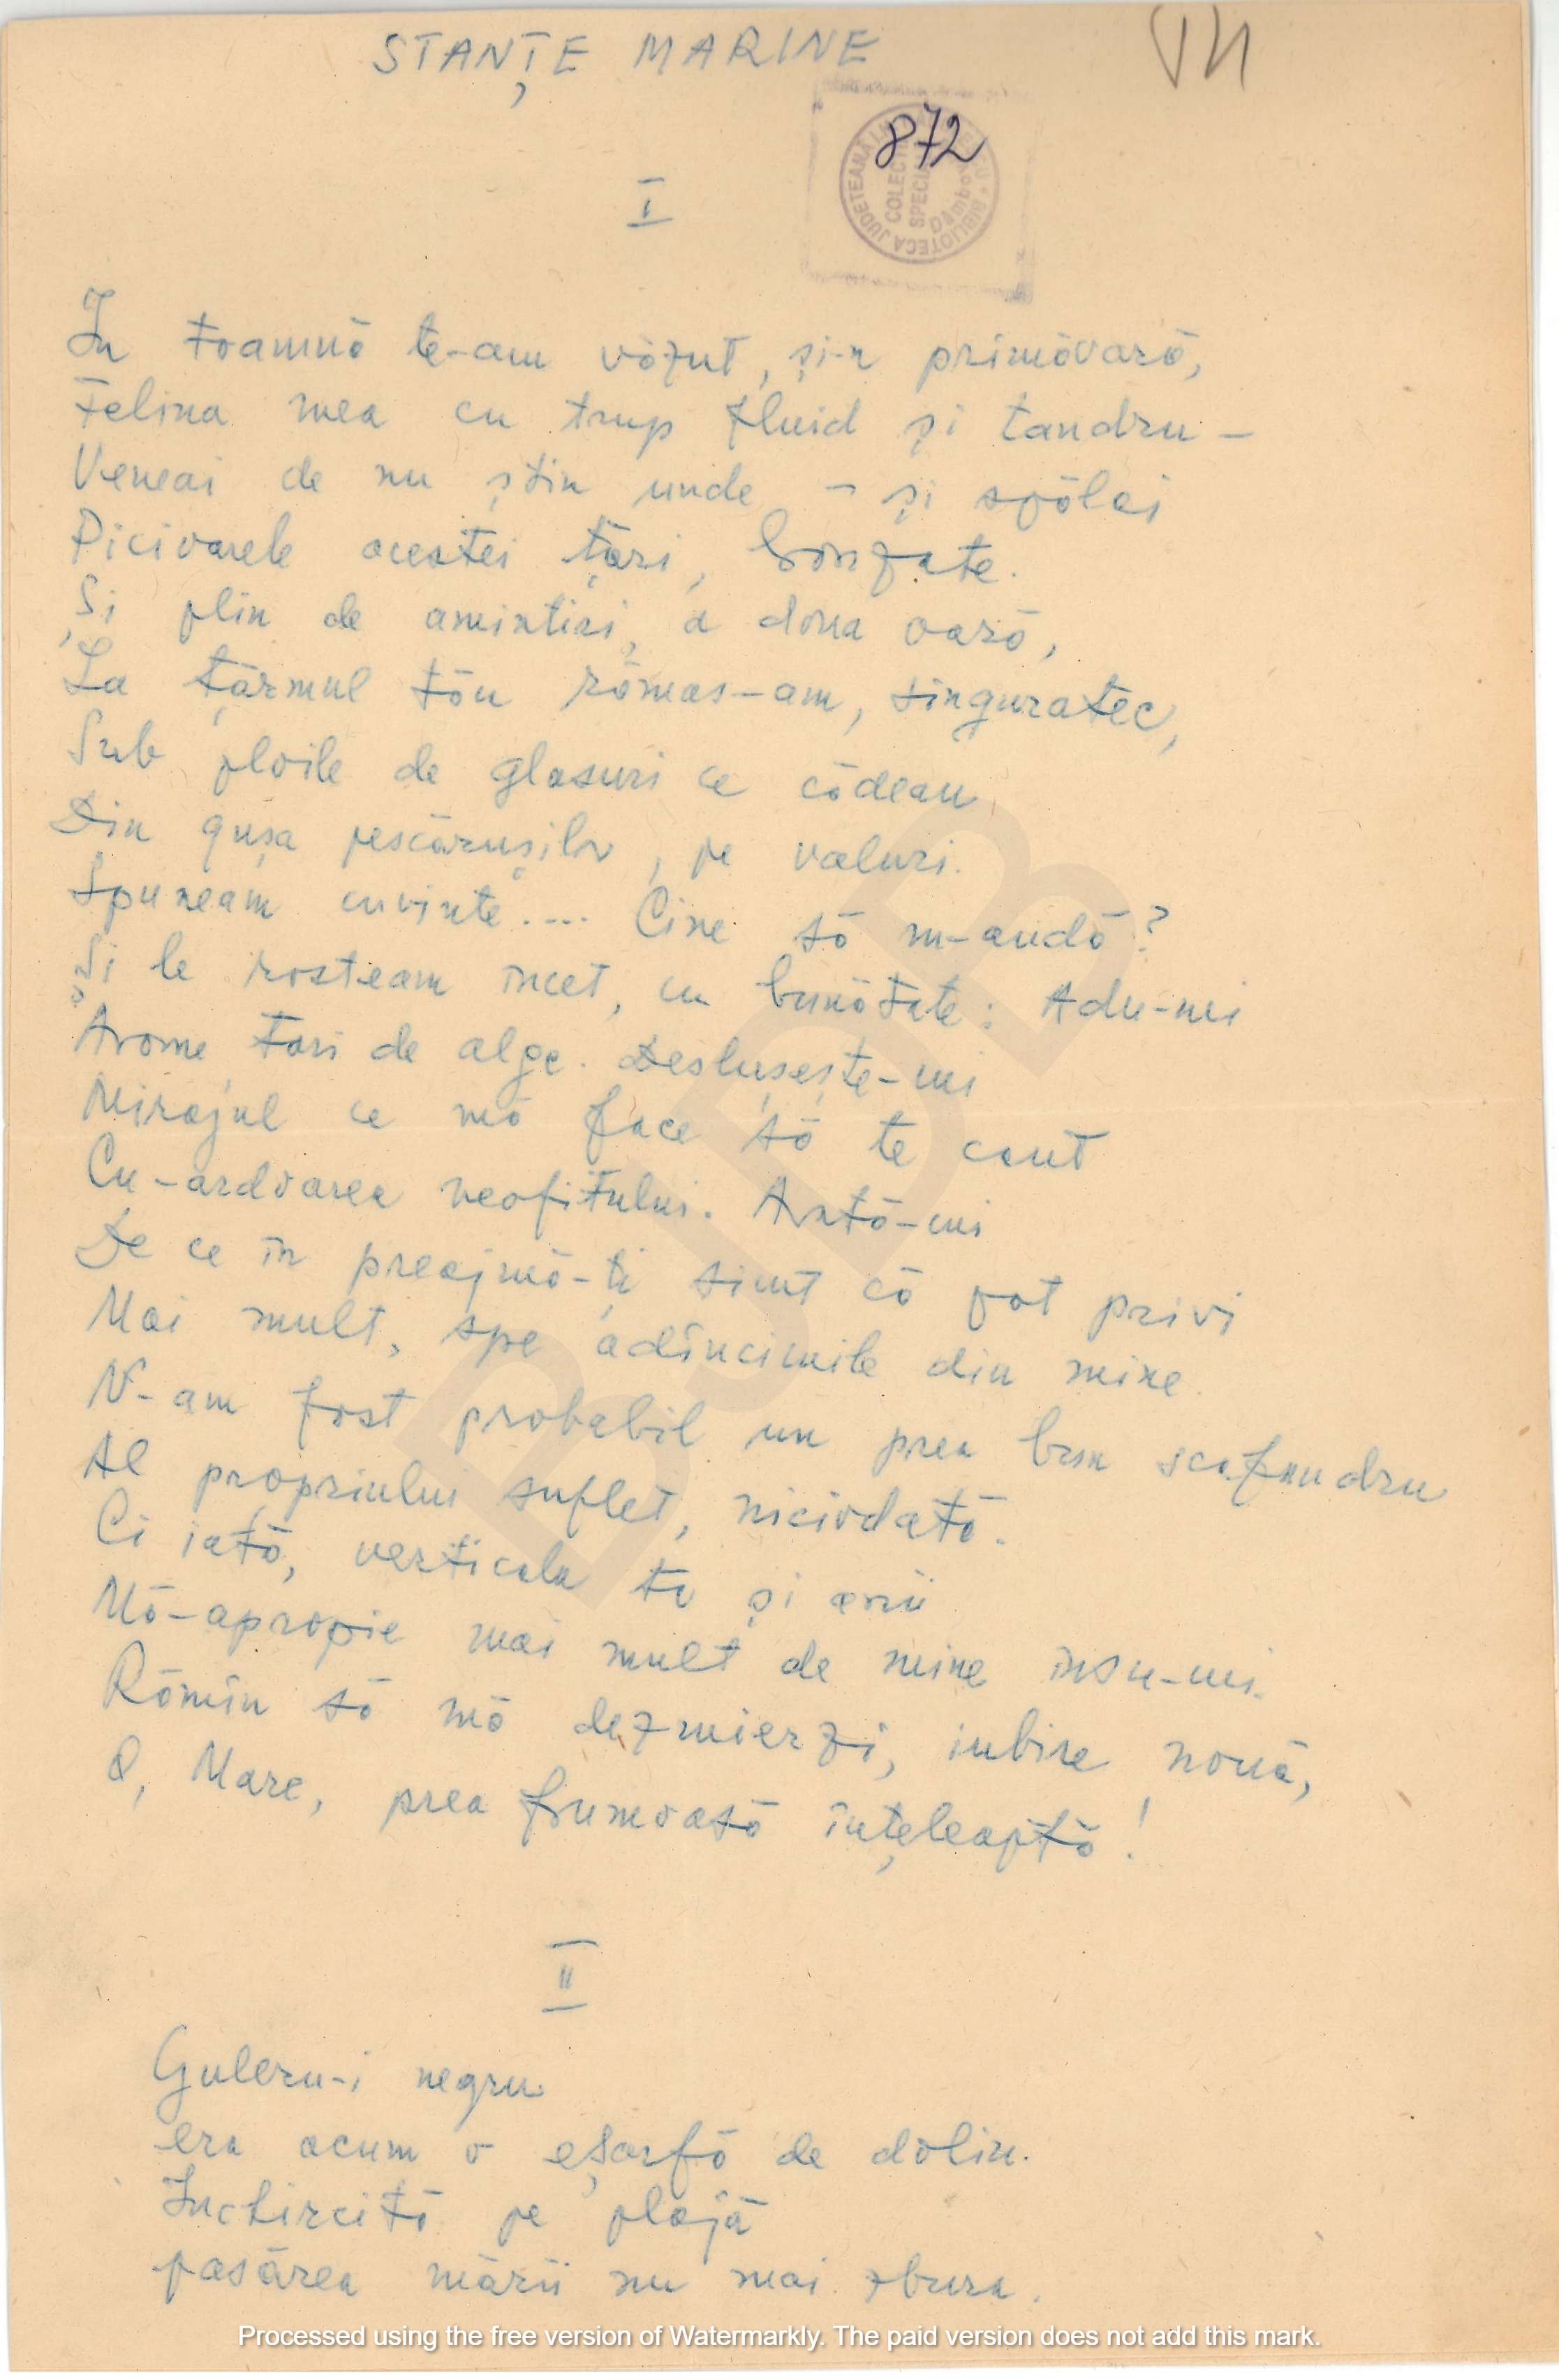 STANȚE MARINE
VII
872
BIBLIOTECA JUDEȚEANĂ
COLECȚII
SPECIALE
Dâmbovița
I
În toamnă te-am văzut, și-n primăvară,
Felina mea cu trup fluid și tandru –
Veneai de nu știu unde – și spălai
Picioarele acestei țări, bronzate.
Și plin de amintiri, a doua oară,
La țărmul tău rămas-am, singuratec,
Sub ploile de glasuri ce cădeau
Din gușa pescărușilor, pe valuri.
Spuneam cuvinte.... Cine să m-audă?
Și le rosteam încet, cu bunătate: Adu-mi
Arome tari de alge. Deslușește-mi
Mirajul ce mă face să te caut
Cu-ardoarea neofitului. Arată-mi
De ce în preajmă-ți simt că pot privi
Mai mult, spe adîncimile din mine.
N-am fost probabil un prea bun scafandru
Al propriului suflet, niciodată.
Ci iată, verticala ta și-a mării
Mă-apropie mai mult de mine însu-mi.
Rămîn să mă dezmierzi, iubire nouă,
O, Mare, prea frumoasă înțeleaptă!
II
Guleru-i negru
era acum o eșarfă de doliu.
Închircită pe plajă
pasărea mării nu mai zbura.
BJDB
Processed using the free version of Watermarkly. The paid version does not add this mark.